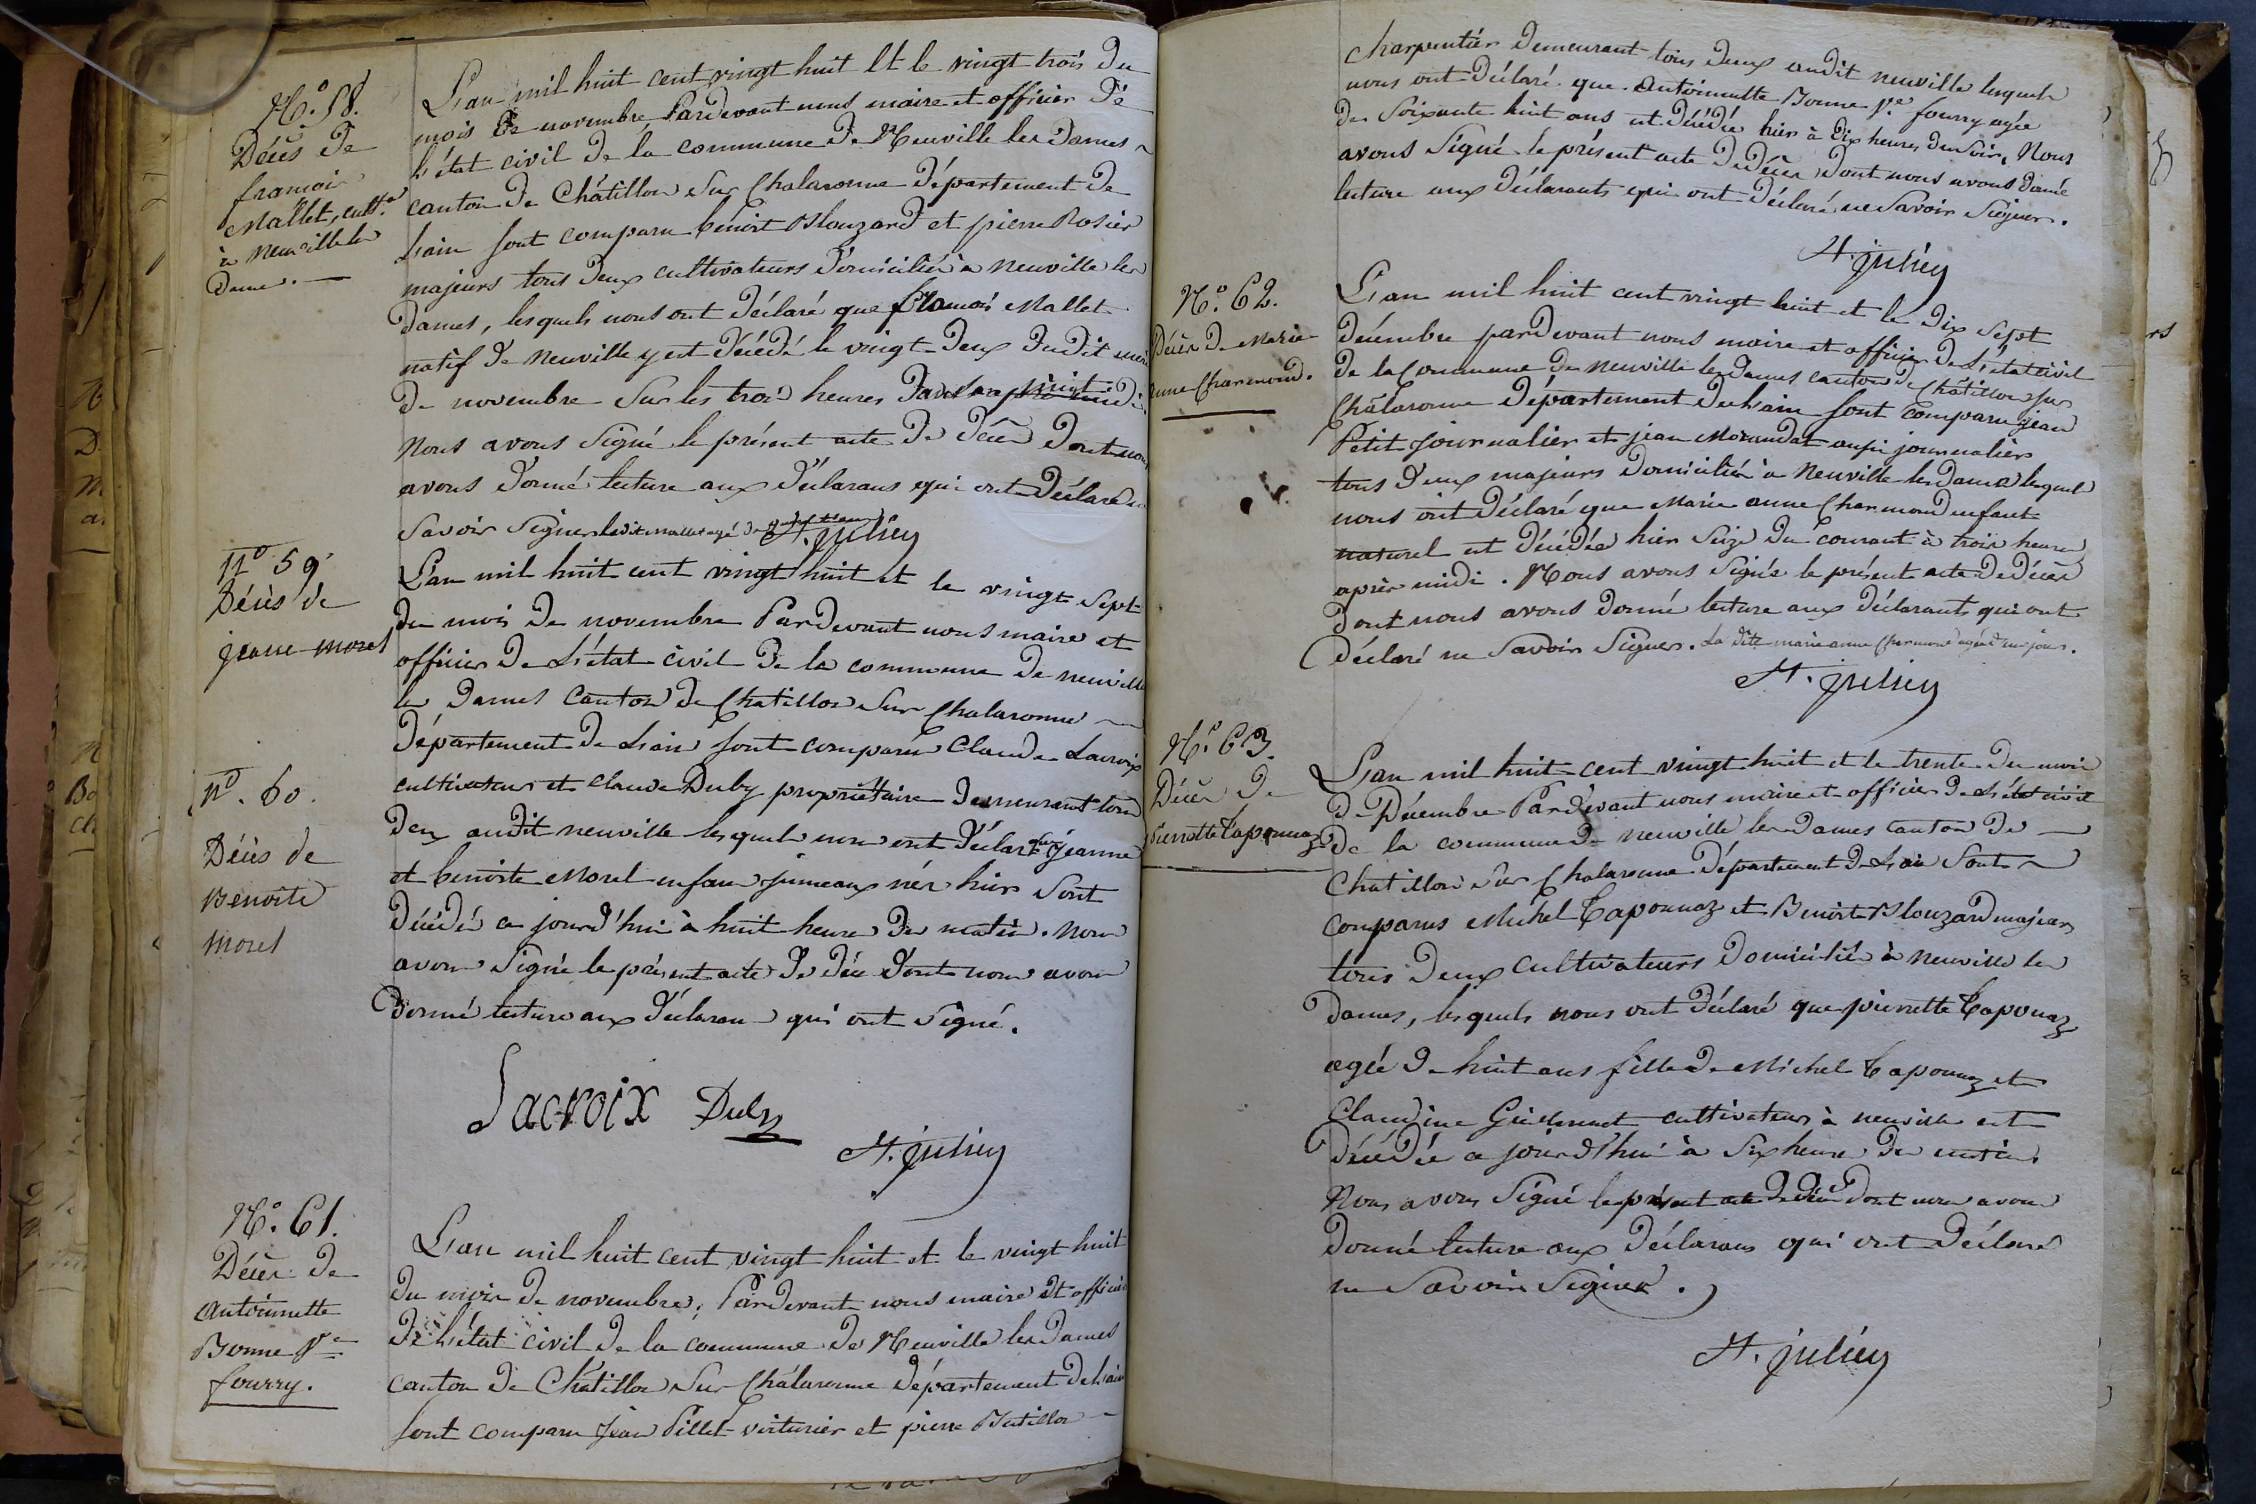 N.º 58.
Décès de
françois
Mallet, cult.r
à Neuville les
Dames. —
L'an mil huit cent vingt huit Et le vingt trois du
mois de novembre Pardevant nous maire et officier de
l'état civil de la commune de Neuville les Dames
canton de Châtillon sur Chalaronne département de
L'ain sont comparu benoit Blouzard et pierre Rosier
majeurs tous deux cultivateurs domiciliés à neuville les
Dames, lesquels nous ont déclaré que françois Mallet
natif de neuville y est décédé le vingt deux dudit mois
de novembre sur les trois heures
Nous avons signé le présent acte de décès dont nous
avons donné lecture aux déclarans qui ont déclaré ne
savoir signer ledit mallet agé de
H. julien
nº 59
Décès de
jeanne morel
nº. 60.
Décès de
Benoite
morel
L'an mil huit cent vingt huit et le vingt sept
du mois de novembre Pardevant nous maire et
officier de L'état civil de la commune de neuville
les Dames canton de Chatillon sur Chalaronne
Département de L'ain sont comparu Claude Lacroix
cultivateur et claude Duby propriétaire demeurant tous
deux audit neuville lesquels nous ont déclaré que jeanne
et benoite Morel enfans jumeaux nés hier sont
décédés ce jourd'hui à huit heure du matin. Nous
avons signé le présent acte de décès dont nous avons
donné lecture aux déclarans qui ont signé.
Lacroix Duby
H. julien
N.º 61.
Décès de
Antoinette
Bonne Ve
fourry.
L'an mil huit cent vingt huit et le vingt huit
du mois de novembre, Pardevant nous maire et officier
de L'état civil de la commune de Neuville les Dames
canton de Châtillon sur Chalaronne département de L'ain
sont comparu Jean Pillet voiturier et pierre Butillon
charpentier demeurant tous deux audit neuville lesquels
nous ont déclaré que antoinette Bonne Ve fourry agée
de soixante huit ans est décédée hier à dix heures du soir. Nous
avons signé le présent acte de décès dont nous avons donné
lecture aux déclarants qui ont déclaré ne savoir signer.
H. julien
N.º 62.
Décès de Marie
anne Charmond.
L'an mil huit cent vingt huit et le dix sept
décembre pardevant nous maire et officier de L'état civil
de la Commune de neuville les Dames canton de Châtillon sur
Châlaronne département de L'ain sont comparu jean
Petit journalier et jean Morandat aussi journalier
tous deux majeurs domiciliés à Neuville les Dames lesquels
nous ont déclaré que Marie anne Charmond enfant
naturel est décédée hier seize du courant à trois heures
après midi. Nous avons signé le présent acte de décès
dont nous avons donné lecture aux déclarants qui ont
déclaré ne savoir signer. La dite marie anne Charmond agée d'un jour.
H. julien
N.º 63.
Décès de
pierrette Caponnaz
L'an mil huit cent vingt huit et le trente du mois
de Décembre Pardevant nous maire et officier de L'état civil
de la commune de neuville les Dames canton de
Chatillon sur Chalaronne département de L'ain sont
comparus Michel Caponnaz et Benoit Blouzard majeurs
tous deux cultivateurs domiciliés à neuville les
Dames, lesquels nous ont déclaré que pierrette Caponnaz
agée de huit ans fille de Michel Caponnaz et
Claudine cultivateurs à neuville est
décédée ce jourd'hui à six heures du matin.
Nous avons signé le présent acte de décès dont nous avons
donné lecture aux déclarans qui ont déclaré
ne savoir signer.
H. julien